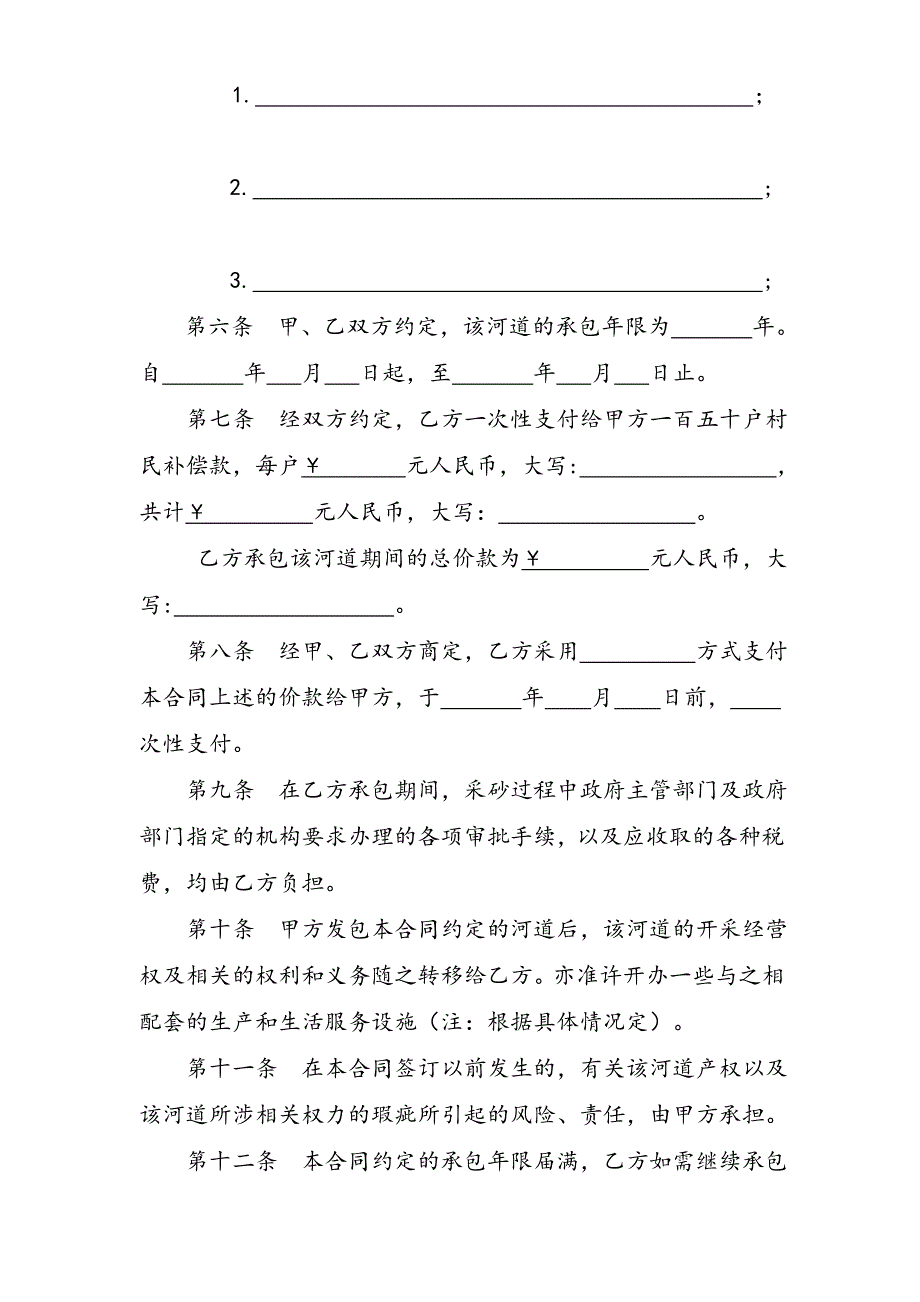 1.______________________________________;
2.______________________________________;
3.______________________________________;
第六条　甲、乙双方约定，该河道的承包年限为_______年。
自_______年___月___日起，至_______年___月___日止。
第七条　经双方约定，乙方一次性支付给甲方一百五十户村
民补偿款，每户￥________元人民币，大写:_________________，
共计￥_________元人民币，大写：_________________。
乙方承包该河道期间的总价款为￥_________元人民币，大
写:___________________。
第八条　经甲、乙双方商定，乙方采用__________方式支付
本合同上述的价款给甲方，于_______年____月____日前，____
次性支付。
第九条　在乙方承包期间，采砂过程中政府主管部门及政府
部门指定的机构要求办理的各项审批手续，以及应收取的各种税
费，均由乙方负担。
第十条　甲方发包本合同约定的河道后，该河道的开采经营
权及相关的权利和义务随之转移给乙方。亦准许开办一些与之相
配套的生产和生活服务设施（注：根据具体情况定）。
第十一条　在本合同签订以前发生的，有关该河道产权以及
该河道所涉相关权力的瑕疵所引起的风险、责任，由甲方承担。
第十二条　本合同约定的承包年限届满，乙方如需继续承包